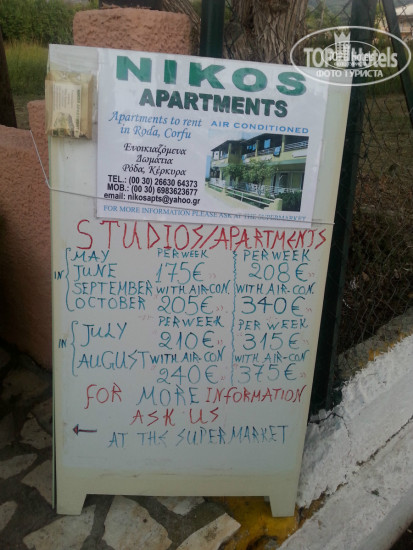 TOPHotels
ФОТО ТУРИСТА
NIKOS
APARTMENTS
Apartments to rent
in Roda, Corfu
AIR CONDITIONED
Ενοικιαζόμενα
Δωμάτια
Ρόδα, Κέρκυρα
TEL.: (00 30) 26630 64373
MOB.: (00 30) 6983623677
email: nikosapts@yahoo.gr
FOR MORE INFORMATION PLEASE ASK AT THE SUPERMARKET
STUDIOS/APARTMENTS
MAY PER WEEK PER WEEK
IN JUNE 175€ 208€
SEPTEMBER WITH AIR-CON WITH AIR-CON.
OCTOBER 205€ 340€
JULY PER WEEK PER WEEK
IN 210€ 315€
AUGUST WITH AIR-CON WITH AIR-CON.
240€ 375€
FOR MORE INFORMATION
ASK US
AT THE SUPERMARKET